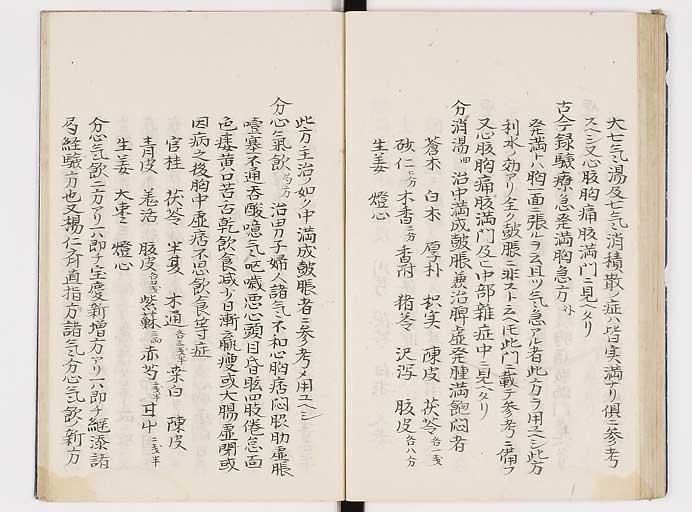 大七氣湯及七氣消積散ノ症ハ皆実満ナリ俱ニ参考
スヘシ又心腹胸痛腹満門ニ見ヘタリ
古今録驗療急発満胸急方
発満トハ胸一面ニ張ルヲ云且ツ氣急アル者此方ヲ用ユヘシ此方
利水ノ効アリ全ク皷脹ニ非ストモ此門ニ載テ参考ニ備フ
又心腹胸痛腹満門及ヒ中部雜症中ニ見ヘタリ
分消湯 治中満成皷脹兼治脾虛発腫満飽悶者
蒼朮 白朮 厚朴 枳実 陳皮 茯苓各一戔
砂仁七分 木香三分 香附 猪苓 沢瀉 腹皮各八分
生姜 燈心
此方主治ノ如ク中満成皷脹者ニ参考メ用ユヘシ
分心氣飲局方 治男子婦人諸氣不和心胸痞悶脹肋虛脹
噎塞不通吞酸噫氣呕噦悪心頭目昏眩四肢倦怠面
色痿黄口苦舌乾飲食減少日漸羸瘦或大腸虛閉或
因病之後胸中虛痞不思飲食等症
官桂 茯苓 半夏 木通各三戔半 桒白 陳皮
青皮 羗活 腹皮 紫蘇 赤芍 甘草
生姜 大棗 燈心
分心氣飲二方アリ一六即チ宝慶新増方アリ一六即チ継添諸
局経驗方也又揚仁斉直指方諸氣分心氣飲ノ新方